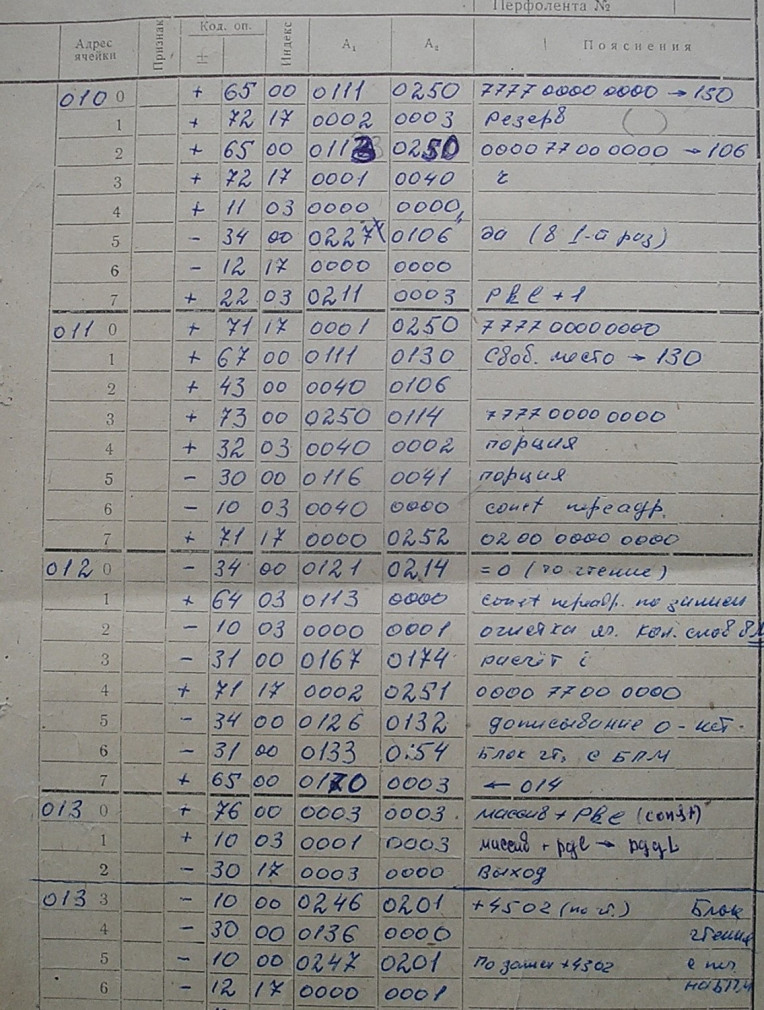 Перфолента №
Адрес ячейки Признак Код. оп. ± Индекс А₁ А₂ Пояснения
010 0 + 65 00 0111 0250 7777 0000 0000 → 130
1 + 72 17 0002 0003 Резерв ( )
2 + 65 00 0113 0250 0000 77 00 0000 → 106
3 + 72 17 0001 0040
4 + 11 03 0000 0000
5 - 34 00 0227 0106 да (в 1-й раз)
6 - 12 17 0000 0000
7 + 22 03 0211 0003 +1
011 0 + 71 17 0001 0250 7777 0000 0000
1 + 67 00 0111 0130 Своб. место → 130
2 + 43 00 0040 0106
3 + 73 00 0250 0114 7777 0000 0000
4 + 32 03 0040 0002 порция
5 - 30 00 0116 0041 порция
6 - 10 03 0040 0000 const переадр.
7 + 71 17 0000 0252 02 00 0000 0000
012 0 - 34 00 0121 0214 =0 (то чтение)
1 + 64 03 0113 0000 const переадр. по записи
2 - 10 03 0000 0001 очистка яч. кол. слов
3 - 31 00 0167 0174 расчёт i
4 + 71 17 0002 0251 0000 77 00 0000
5 - 34 00 0126 0132 дописывание 0-
6 - 31 00 0133 0154 Блок чт. с БПМ
7 + 65 00 0170 0003 ← 014
013 0 + 76 00 0003 0003 массив + (const)
1 + 10 03 0001 0003 массив + →
2 - 30 17 0003 0000 Выход
013 3 - 10 00 0246 0201 +4502 (по чт.) Блок
4 - 30 00 0136 0000 чтения
5 - 10 00 0247 0201 По записи +4302
6 - 12 17 0000 0001